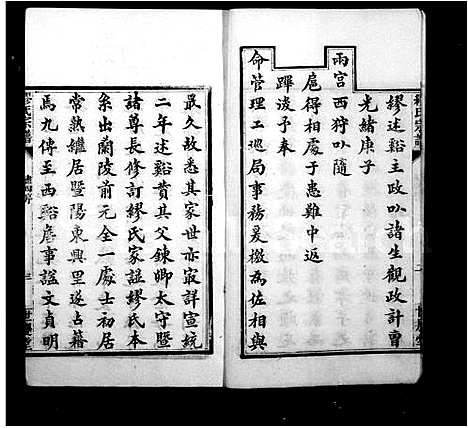 繆述谿主政以諸生觀政計曹
光緒庚子
兩宮西狩以隨
扈得相處于患難中返
蹕後予奉
命管理工巡局事務爰檄為佐相與
最久故悉其家世亦最詳宣統
二年述谿賫其父錬卿太守暨
諸尊長修訂繆氏家譜繆氏本
系出蘭陵前元全一處士初居
常熟繼居暨陽東興里遂占籍
焉九傳至西谿詹事諡文貞明
繆氏宗譜
三